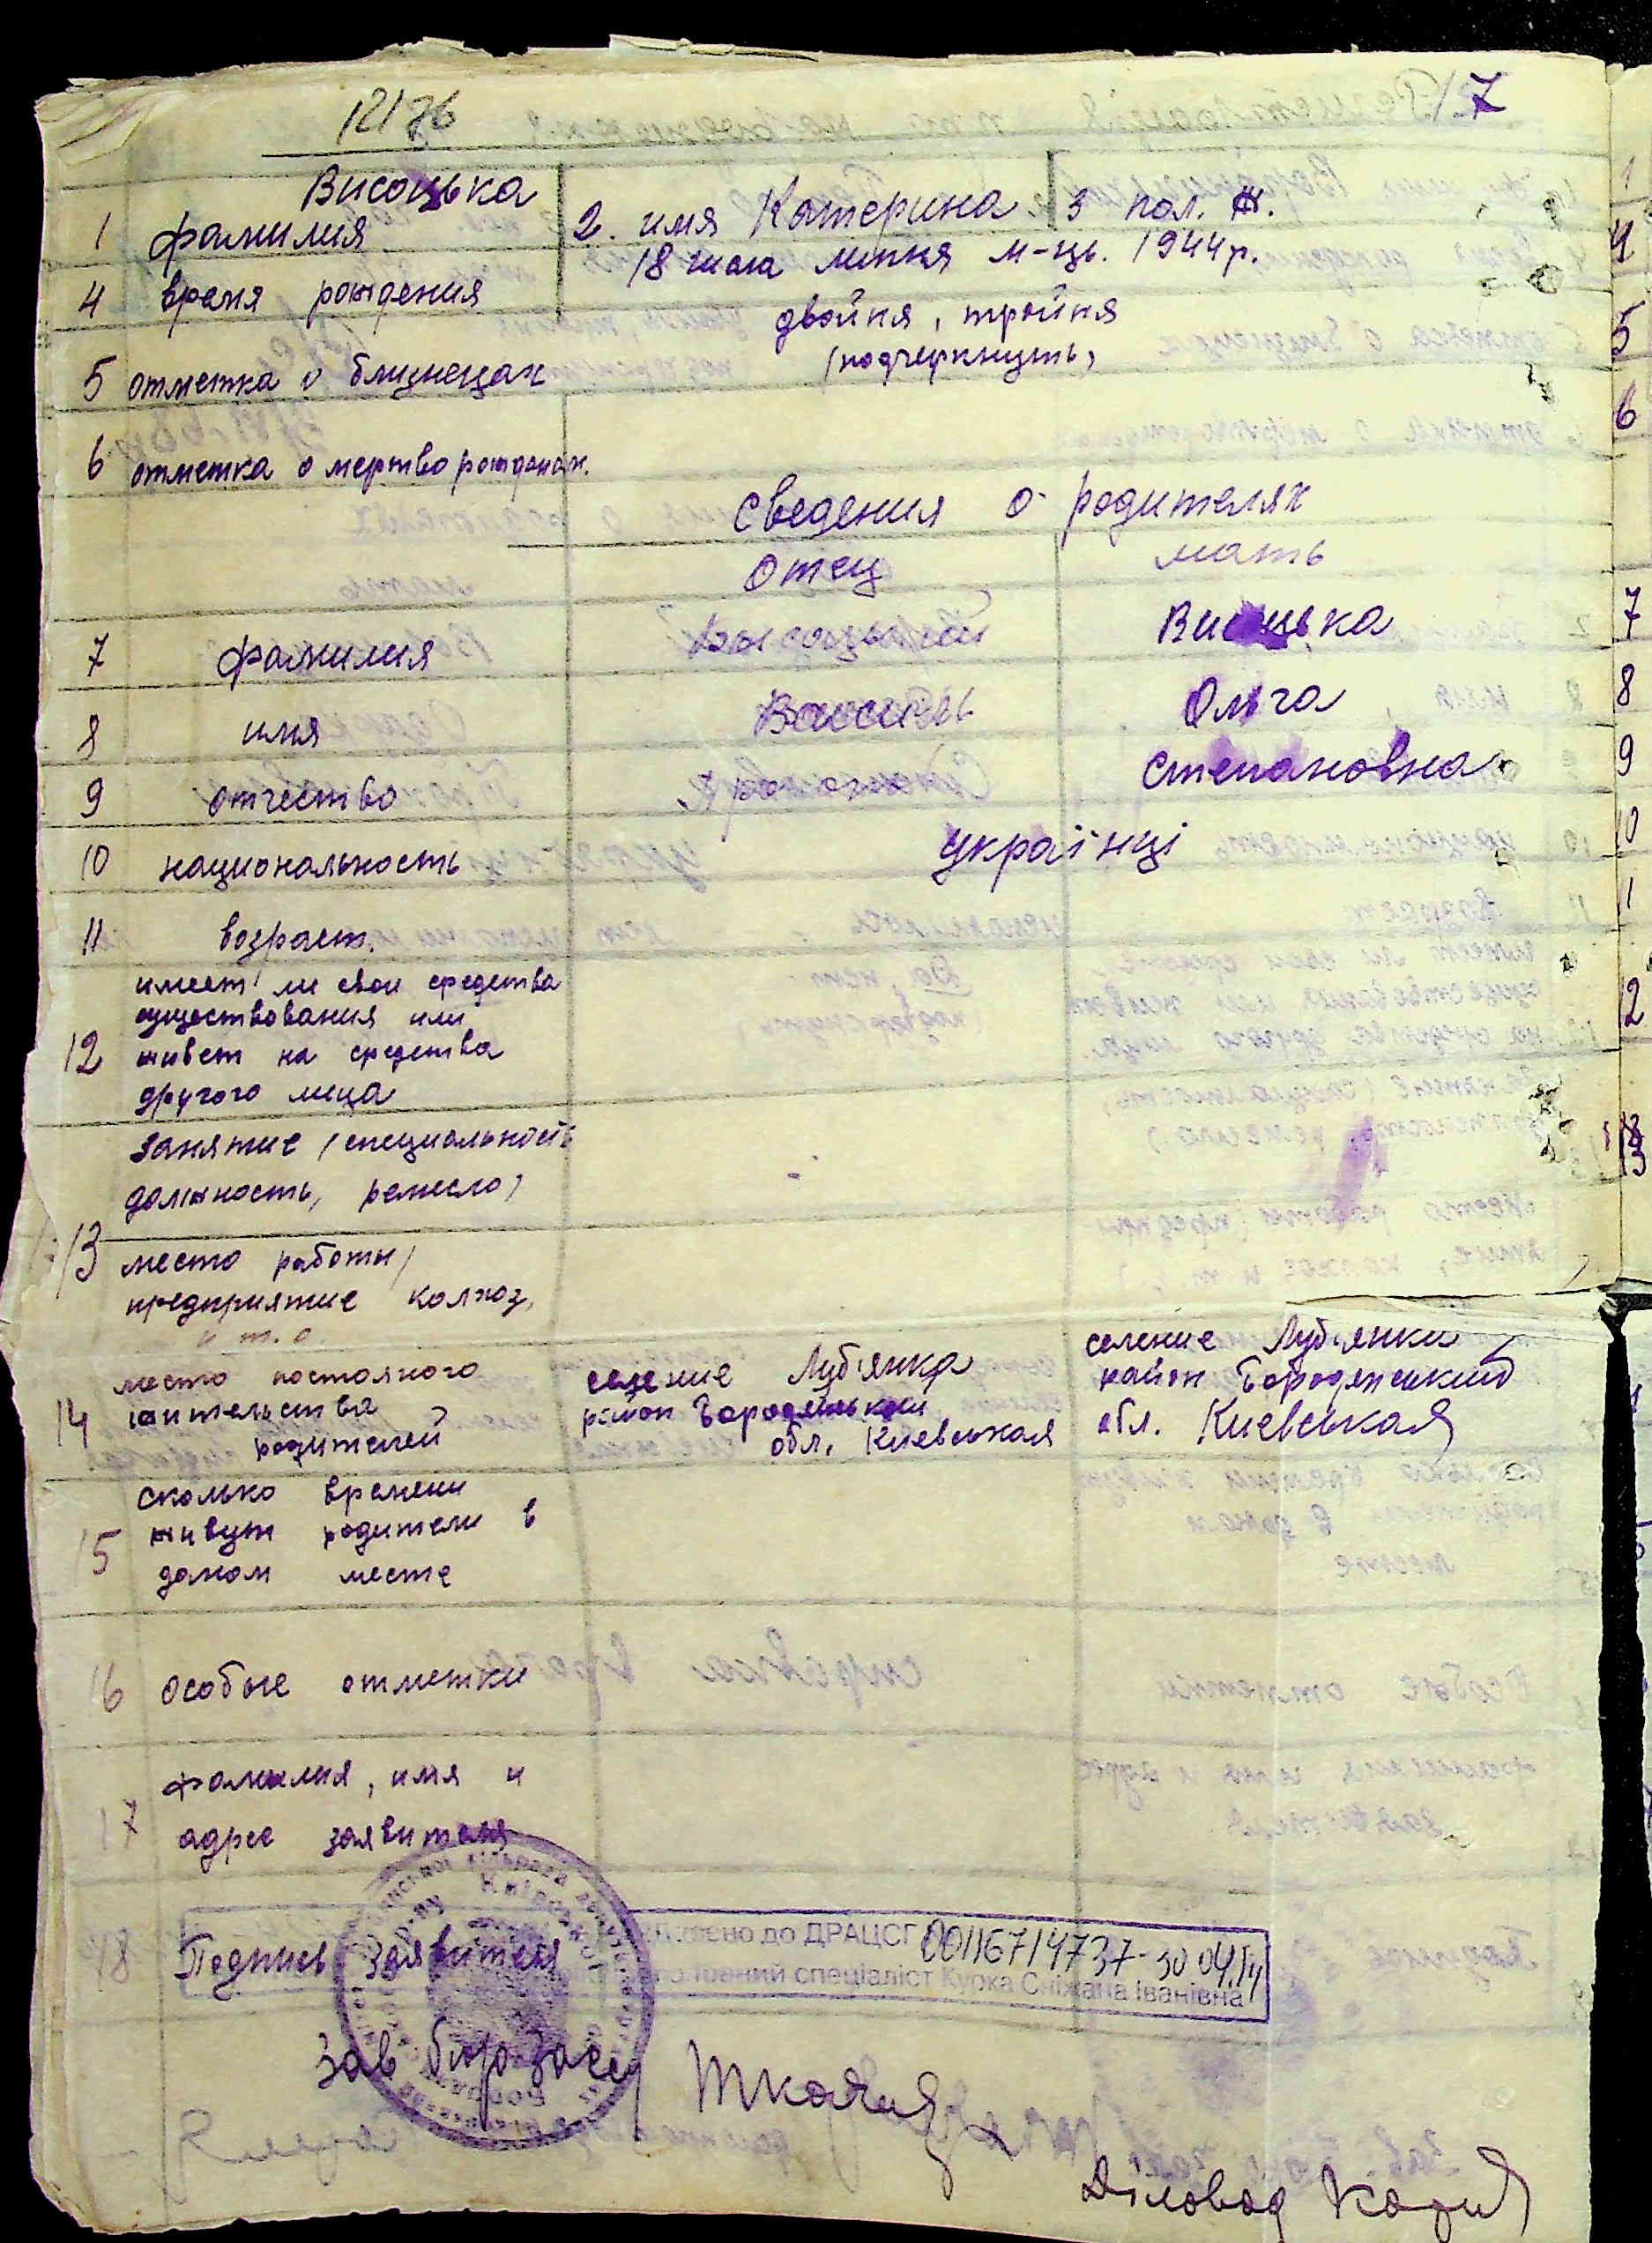 12176
7
Висоцька
1 фамилия
2. имя Катерина 3 пол. Ж.
4 время рождения
18 числа липня м-ць. 1944 р.
двойня, тройня
(подчеркнуть)
5 отметка о близнецах
6 отметка о мертворожденн.
Сведения о родителях
Отец мать
7 фамилия Висоцька
8 имя Василь Ольга
9 отчество Степановна
10 национальность українці
11 возраст.
имеет ли свои средства
существования или
12 живет на средства
другого лица
занятие (специальность
должность, ремесло)
13 место работы (
предприятие колхоз,
и т.д.
место постояного
14 жительства
родителей
селение Луб'янка
район Бородянський
обл. Киевськая
селение Луб'янка
район Бородянський
обл. Киевськая
сколько времени
15 живут родители в
даном месте
16 особые отметки
фамилия, имя и
17 адрес заявителя
18 Подпись заявителя
до ДРАЦСГ 00116714737-30 04.14
головний спеціаліст Курка Сніжана Іванівна
Зав бюро Загсу
Діловод